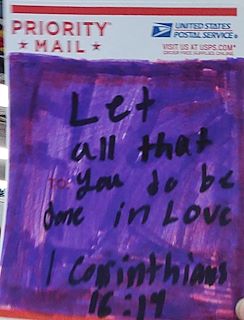 PRIORITY
★ MAIL ★
UNITED STATES
POSTAL SERVICE®
VISIT US AT USPS.COM®
ORDER FREE SUPPLIES ONLINE
Let
all that
TO:
you do be
done in Love
1 Corinthians
16:14